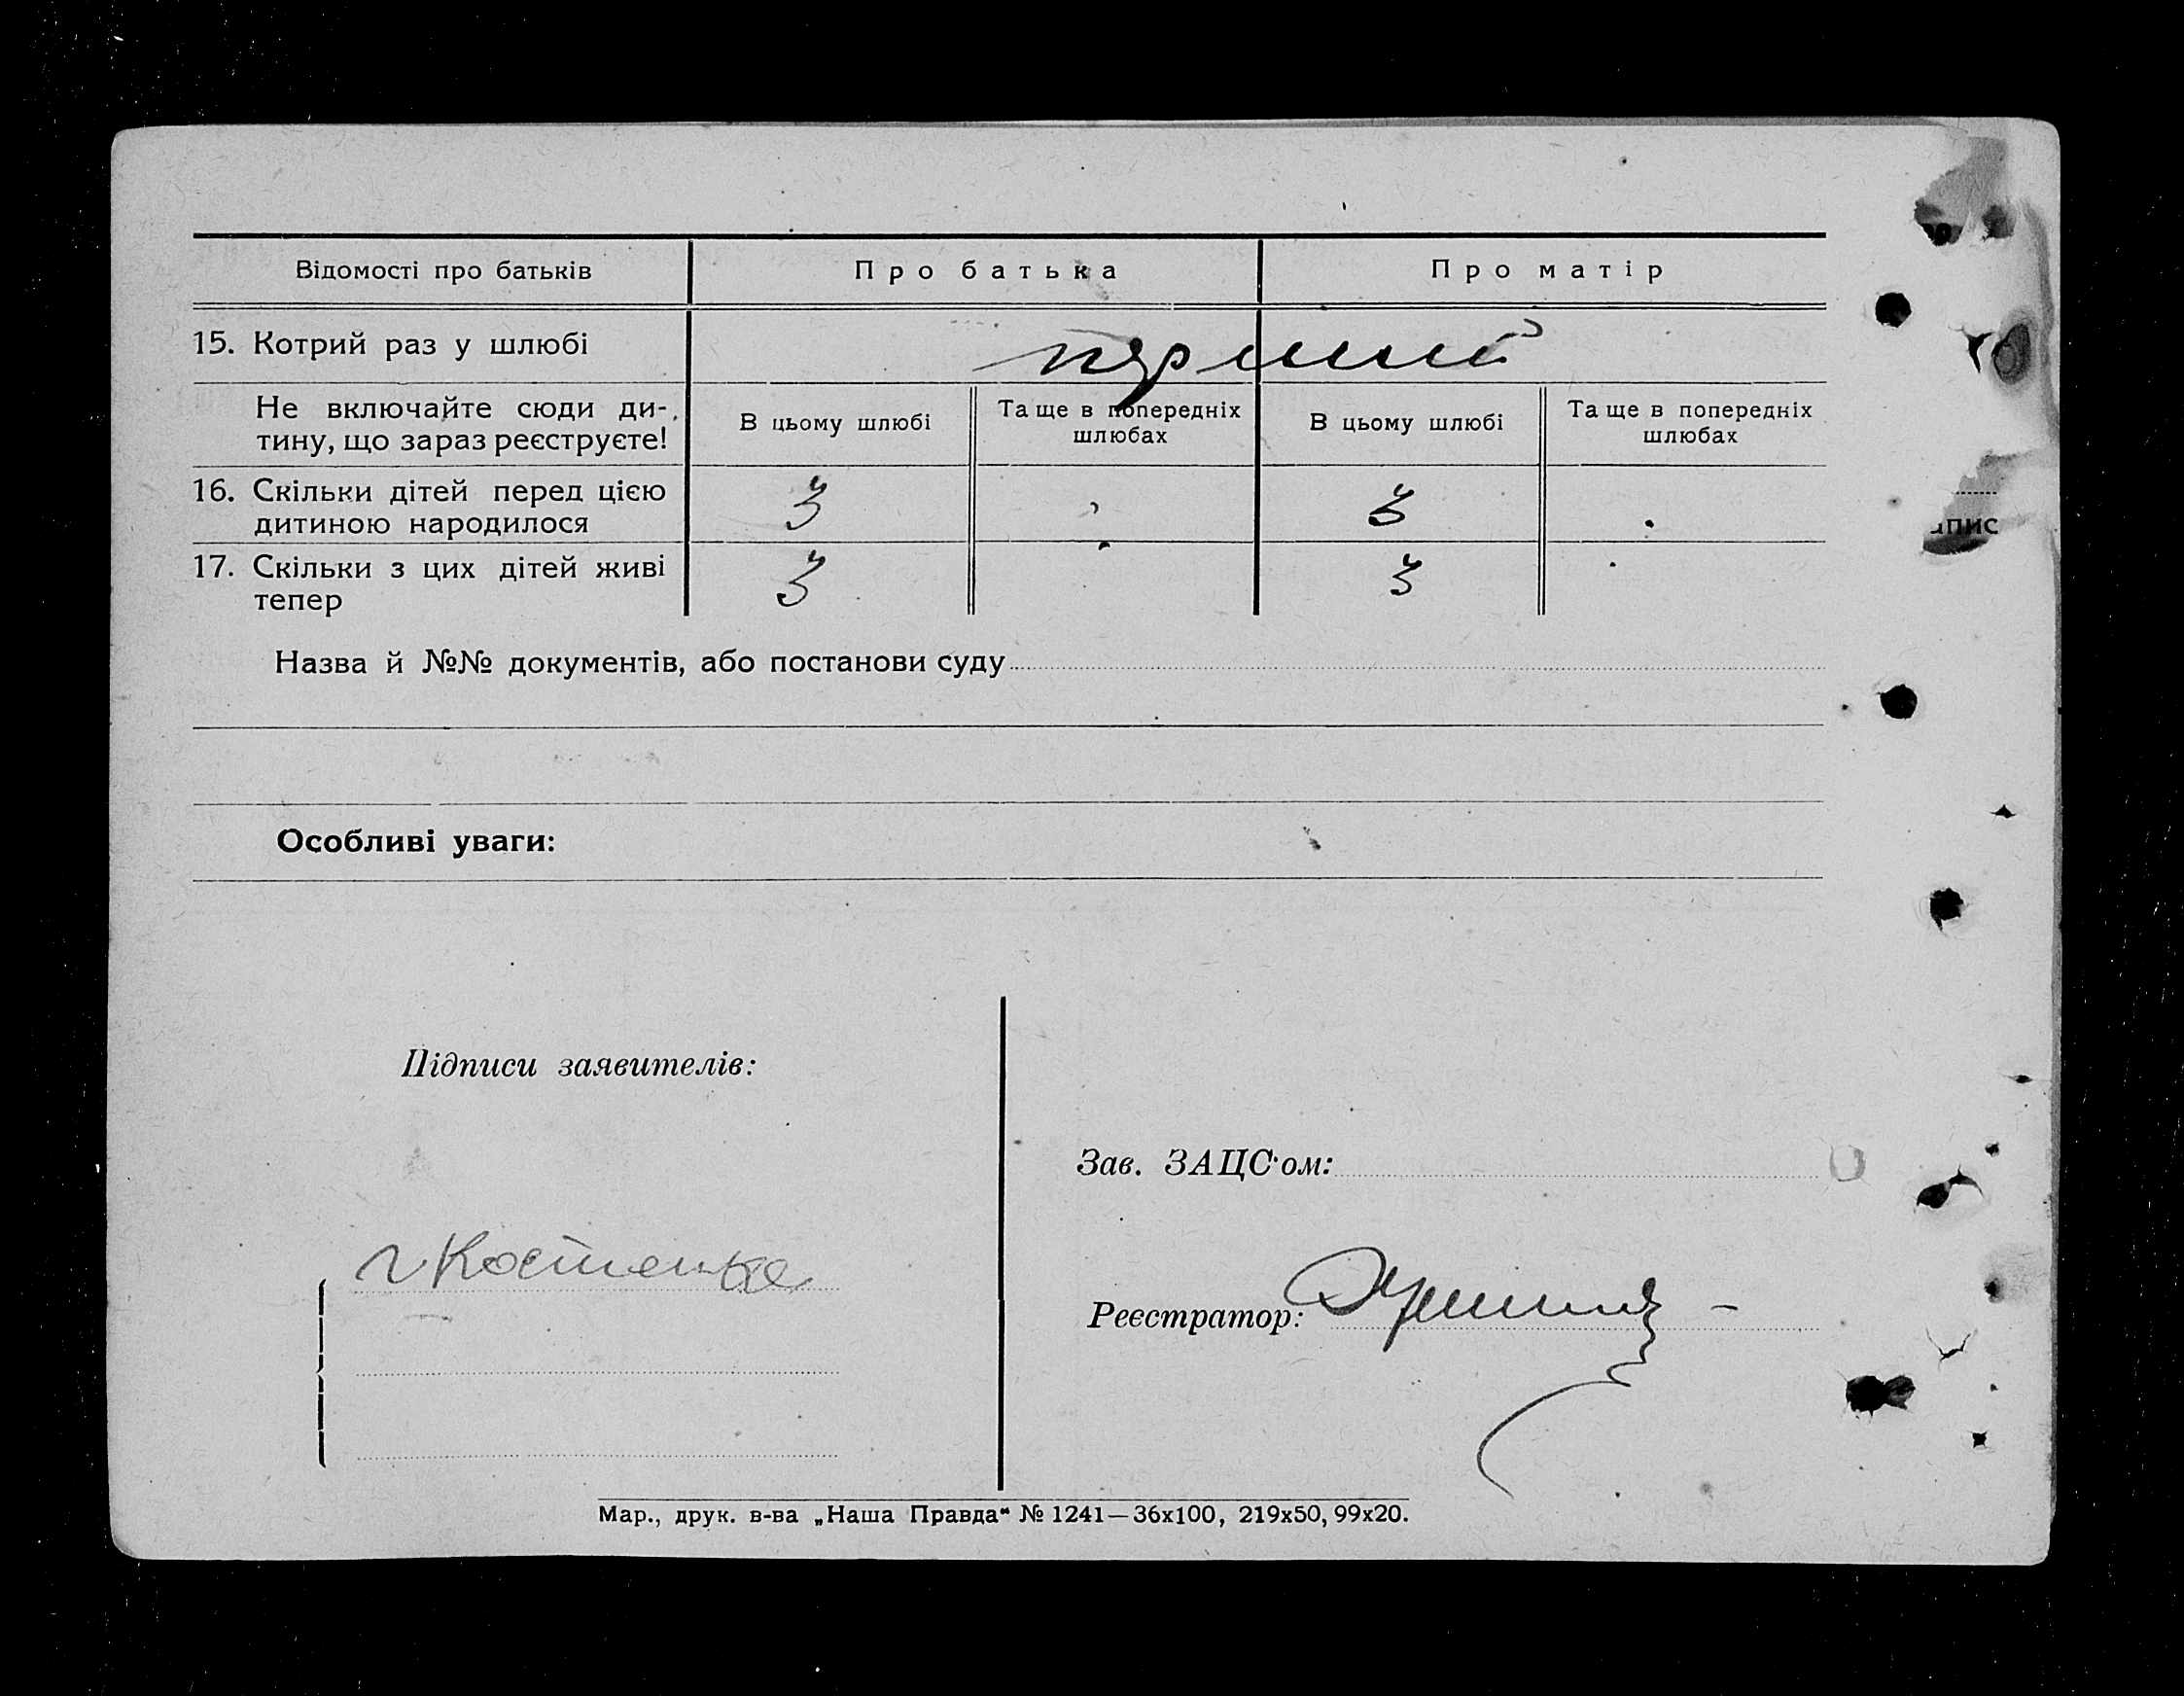 Відомості про батьків
Про батька
Про матір
15. Котрий раз у шлюбі
перший
Не включайте сюди ди-
тину, що зараз реєструєте!
В цьому шлюбі
Та ще в попередніх
шлюбах
В цьому шлюбі
Та ще в попередніх
шлюбах
16. Скільки дітей перед цією
дитиною народилося
3
3
17. Скільки з цих дітей живі
тепер
3
3
Назва й №№ документів, або постанови суду
Особливі уваги:
Підписи заявителів:
Зав. ЗАЦС'ом:
г Костенко
Реєстратор:
Мар., друк. в-ва „Наша Правда" № 1241—36х100, 219х50, 99х20.